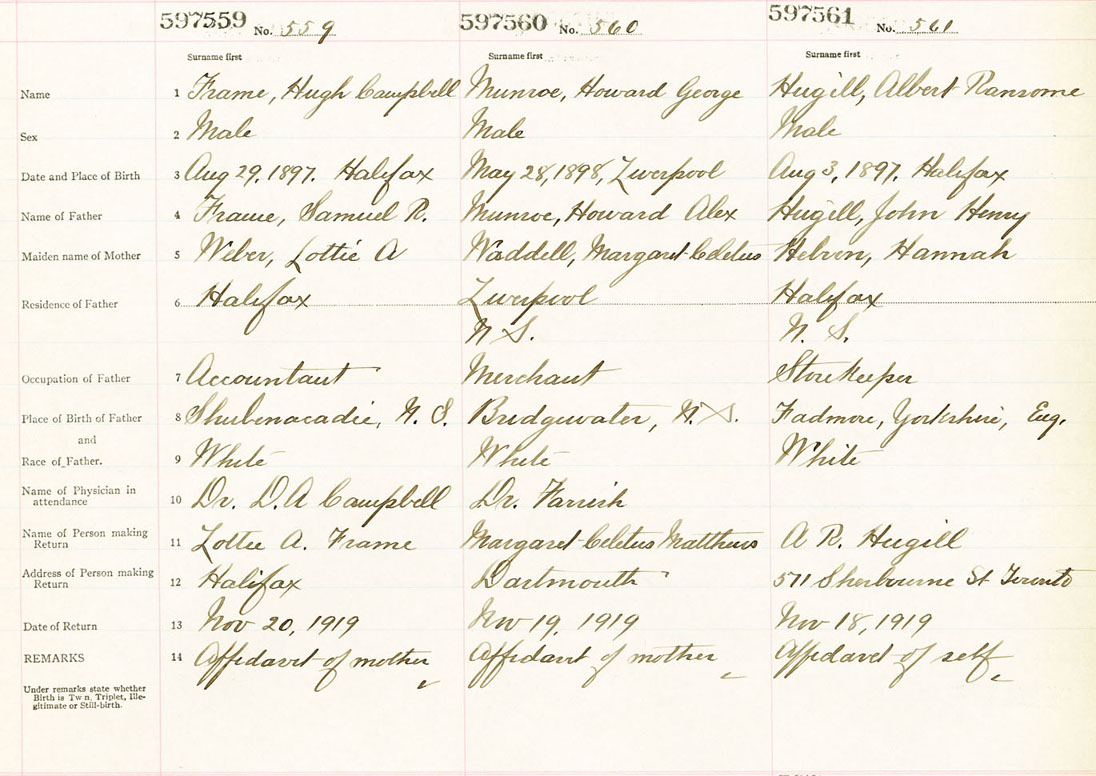 597559 No. 559 597560 No. 560 597561 No. 561
Surname first Surname first Surname first
Name 1 Frame, Hugh Campbell Munroe, Howard George Hugill, Albert Ransome
Sex 2 Male Male Male
Date and Place of Birth 3 Aug 29, 1897. Halifax May 28, 1898, Liverpool Aug 3, 1897. Halifax
Name of Father 4 Frame, Samuel R. Munroe, Howard Alex Hugill, John Henry
Maiden name of Mother 5 Weber, Lottie A Waddell, Margaret Celetus Hebron, Hannah
Residence of Father 6 Halifax Liverpool Halifax
N S. N. S.
Occupation of Father 7 Accountant Merchant Storekeeper
Place of Birth of Father 8 Shubenacadie, N. S. Bridgewater, N. S. Fadmore, Yorkshire, Eng.
and
Race of Father. 9 White White White
Name of Physician in
attendance 10 Dr. D. A Campbell Dr. Farrish
Name of Person making
Return 11 Lottie A. Frame Margaret Celetus Matthews A R. Hugill
Address of Person making
Return 12 Halifax Dartmouth 571 Sherbourne St Toronto
Date of Return 13 Nov 20, 1919 Nov 19, 1919 Nov 18, 1919
REMARKS 14 Affidavit of mother Affidavit of mother Affidavit of self
Under remarks state whether
Birth is Tw n, Triplet, Ille-
gitimate or Still-birth.